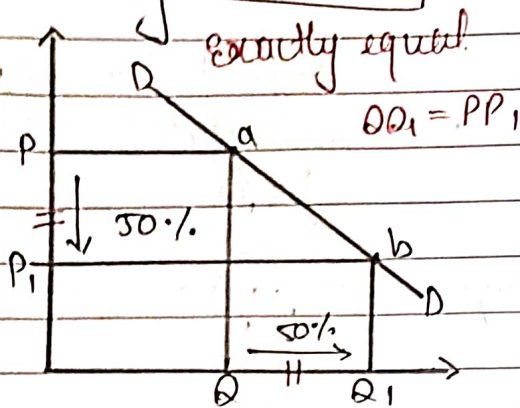 Exactly equal
D
QQ₁ = PP₁
a
P
50%
b
P₁
D
50%
Q
Q₁